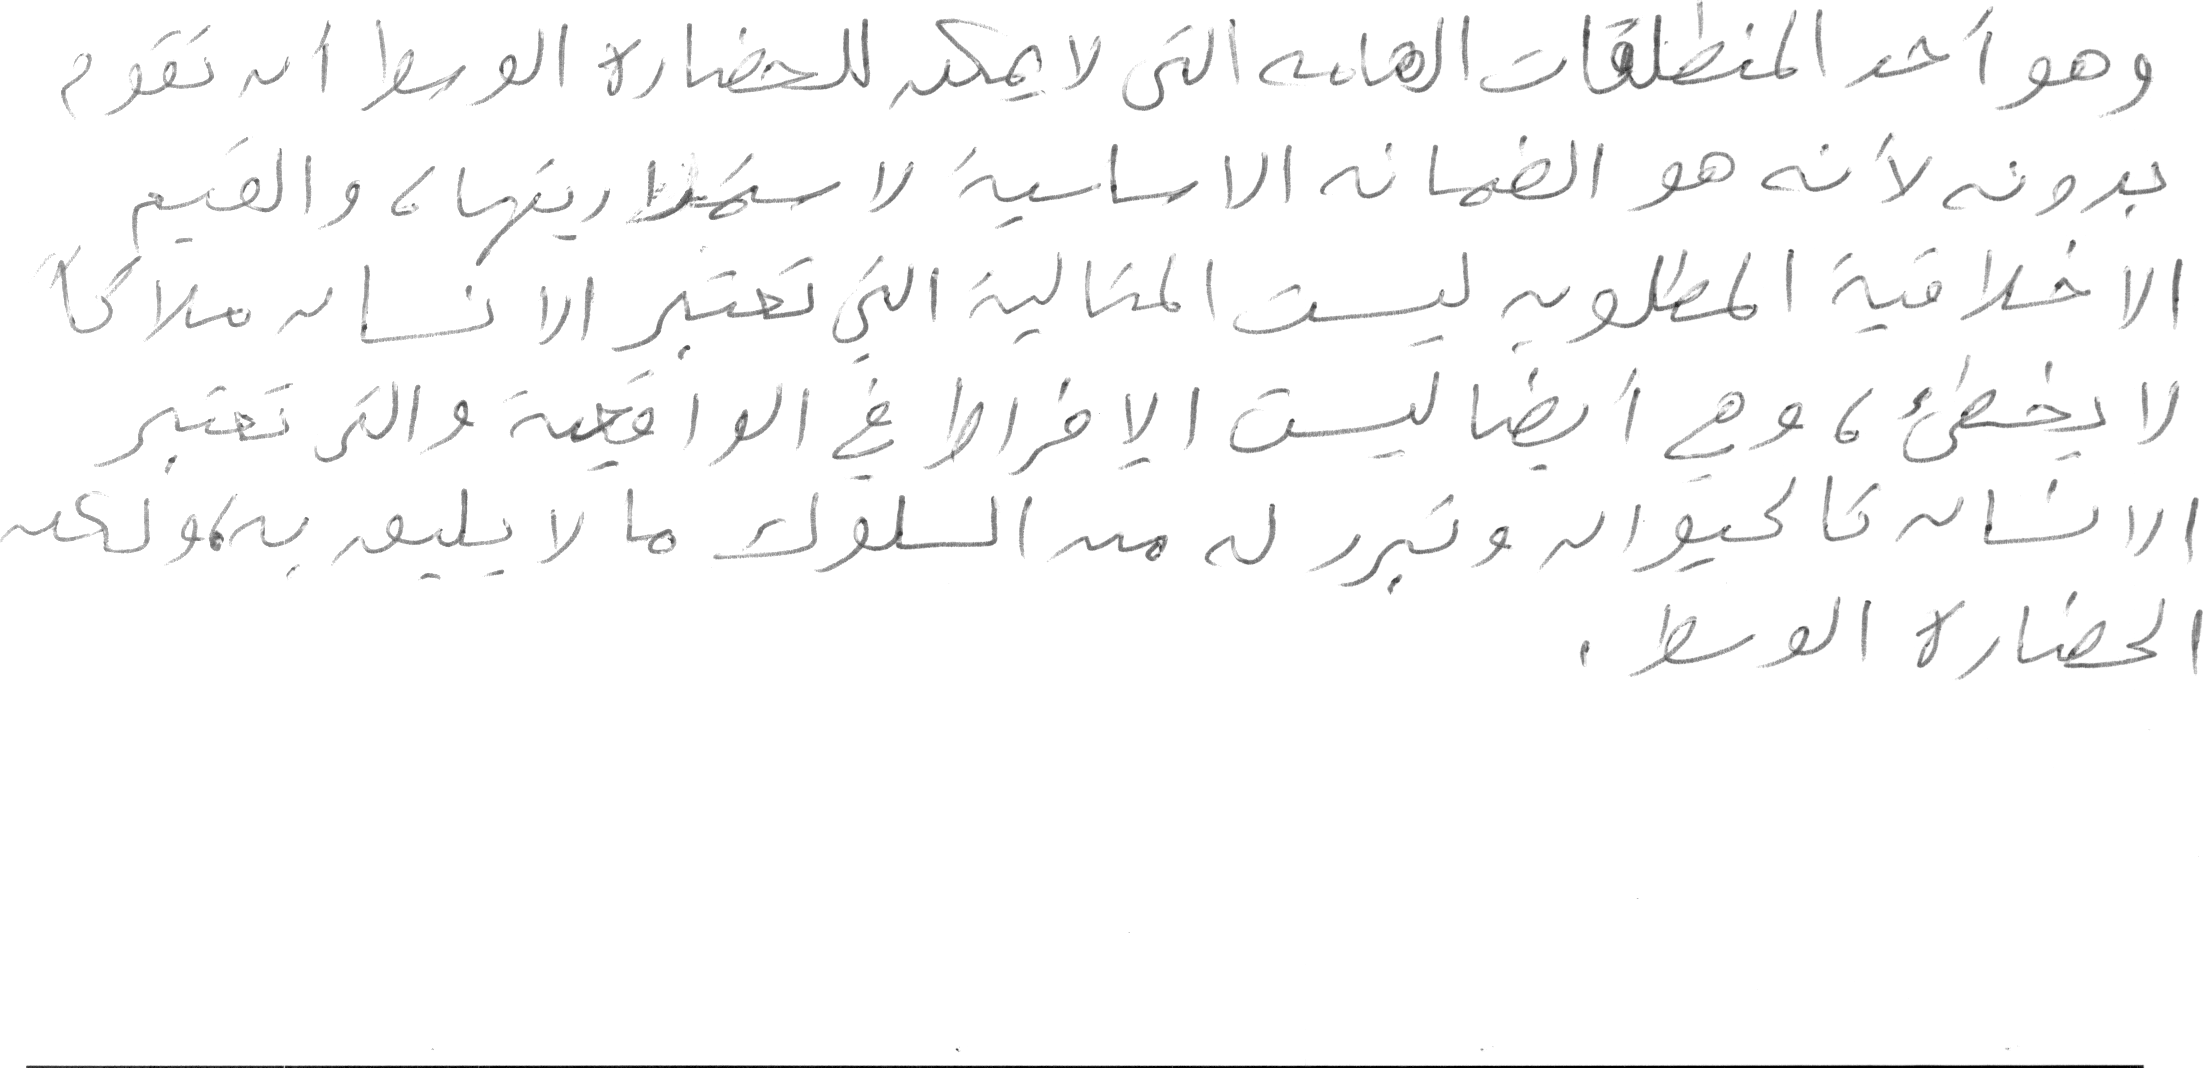 وهو أحد المنطلقات الهامه التى لا يمكن للحضارة الوسط أن تقوم
بدونه لأنه هو الضمانه الاساسية لاستمراريتها، والقيم
الاخلاقية المطلوبه ليست المثالية التي تعتبر الانسان ملاكاً
لا يخطئ، وهي أيضا ليست الإفراط في الواقعية والتى تعتبر
الانسان كالحيوان وتبرر له من السلوك ما لا يليق به، ولكن
الحضارة الوسط.